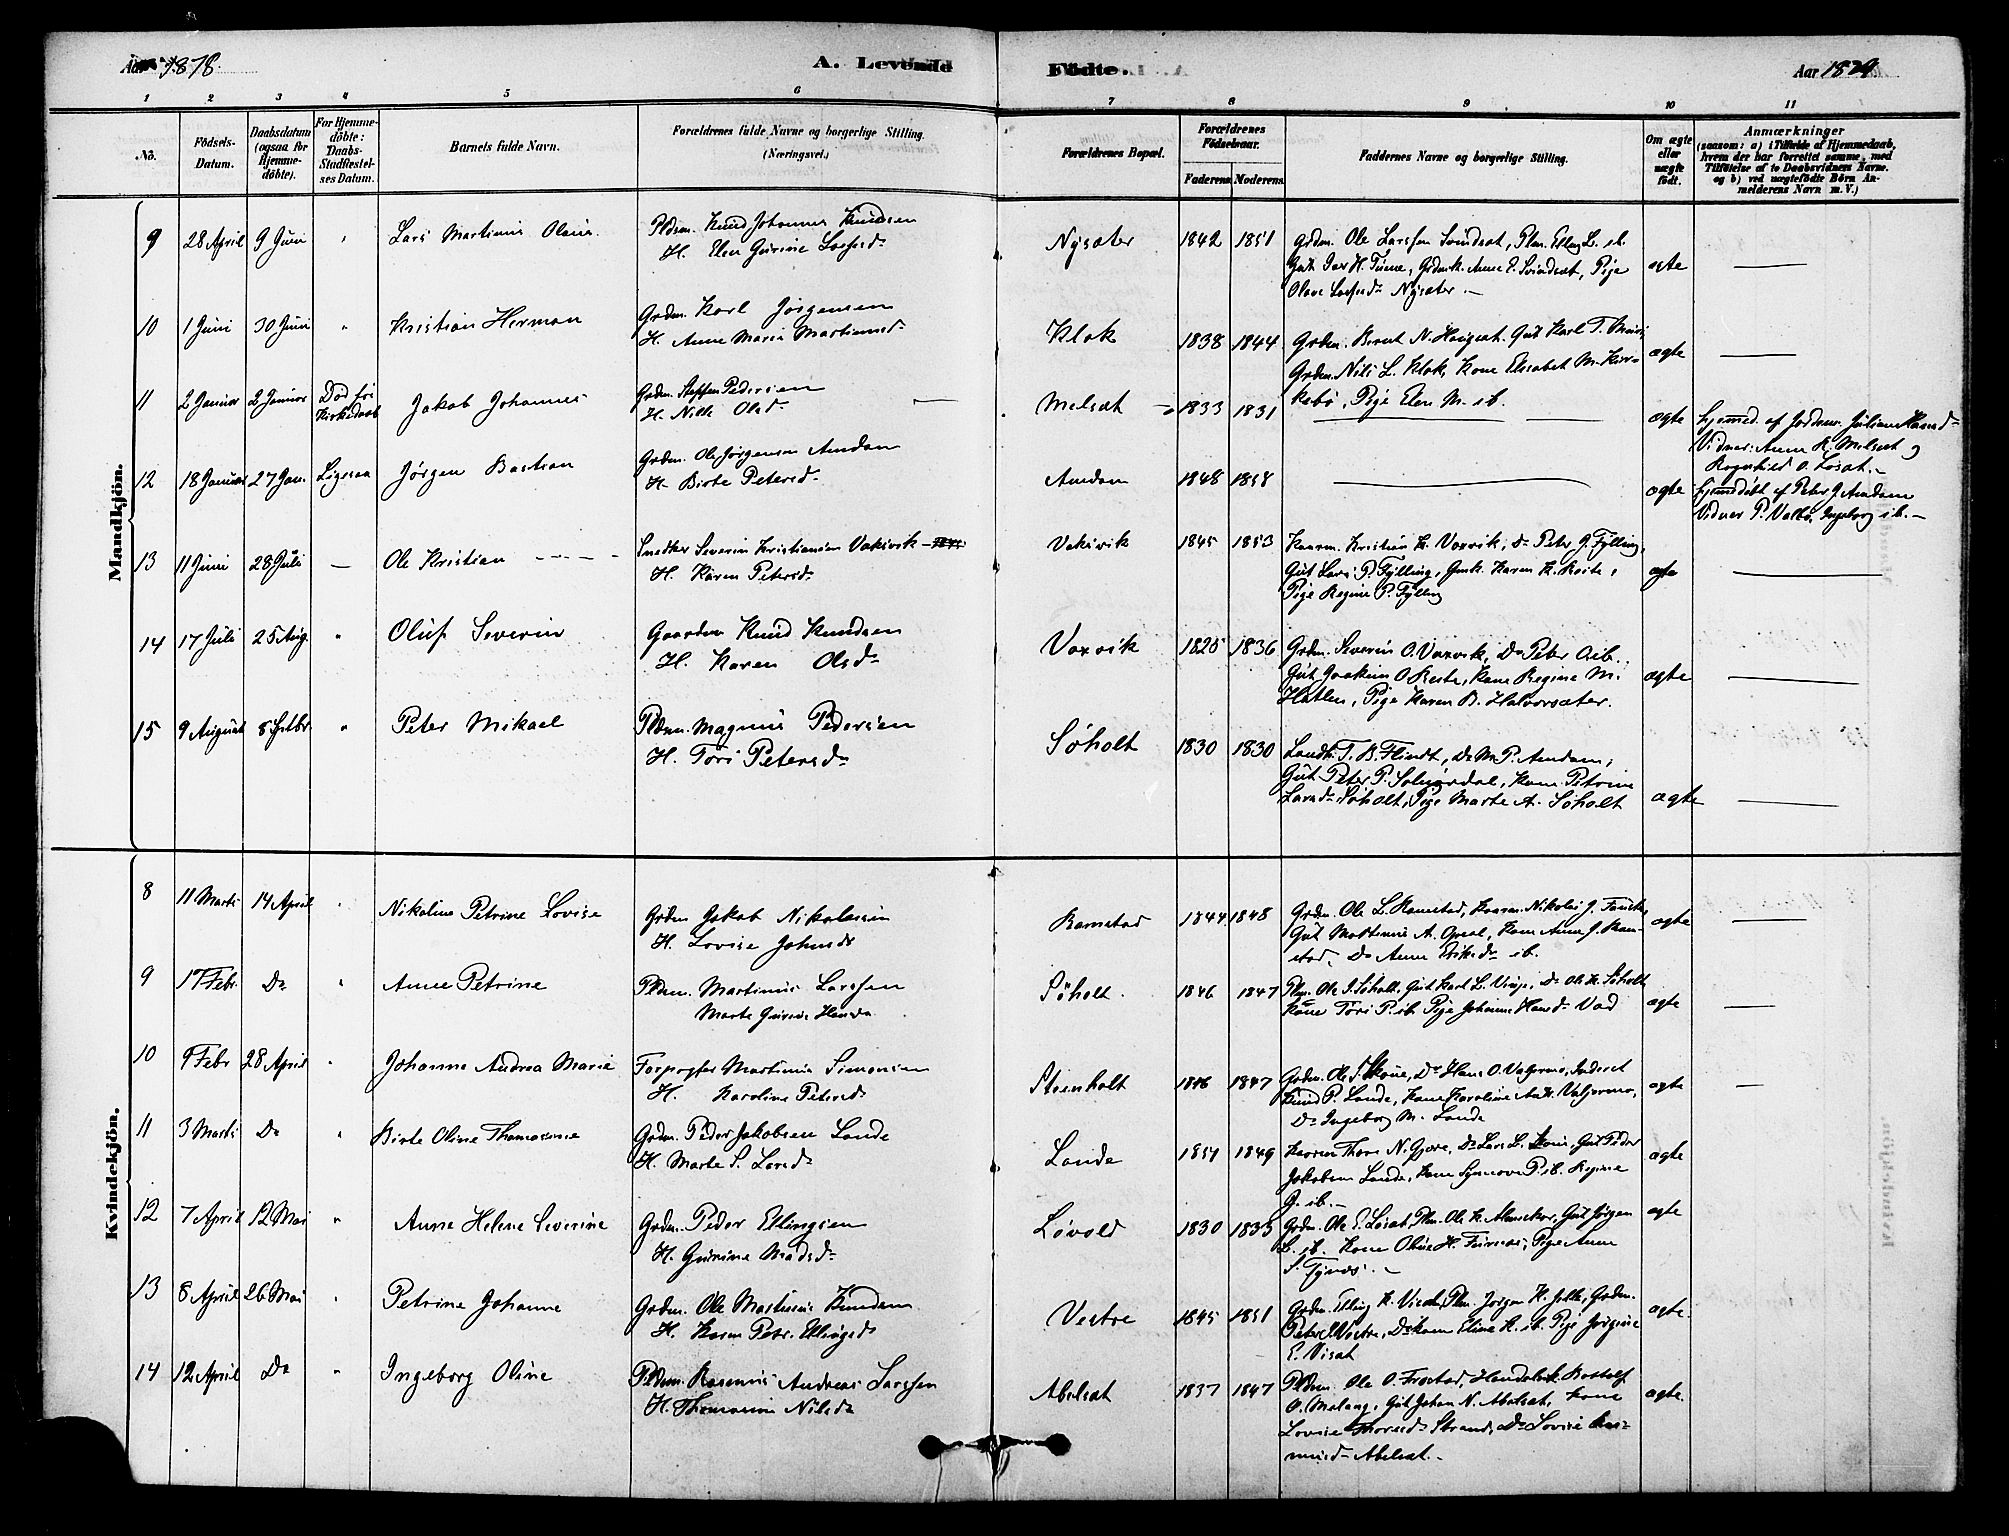 Aar 1878
A. Levende
Födte.
Aar 1879
1 2 3 4 5 6 7 8 9 10 11
No.
Födsels-
Datum.
Daabsdatum
(ogsaa for
Hjemme-
döbte).
For Hjemme-
döbte:
Daabs-
Stadfæstel-
ses Datum.
Barnets fulde Navn.
Forældrenes fulde Navne og borgerlige Stilling.
(Næringsvei.)
Forældrenes Bopæl.
Forældrenes
Födselsaar.
Faderens Moderens
Faddernes Navne og borgerlige Stilling.
Om ægte
eller
uægte
födt.
Anmærkninger
(saasom: a) i Tilfælde af Hjemmedaab,
hvem der har forrettet samme, med
Tilföielse af to Daabsvidners Navne.
og b) ved uægtefödte Börn An-
melderens Navn m. V.)
Mandkjön.
9 28 April 9 Juni " Lars Martinus Olaus
Pldsm. Knud Johannes Knudsen
H. Elen Gurine Larsd
Nysæter 1842 1851
Grdm. Ole Larssen Svindset, Plm. Elling L. ib.
Gut Iver H. Tusse, Grdmk. Anne E. Svindset, Pige
Olave Larsd Nysæter
ægte
10 1 Juni 30 Juni " Kristian Herman
Grdm. Karl Jørgensen
H. Anne Maria Martinusd
Klok 1838 1844
Grdm. Bernt N. Haugset. Gut Karl T.
Grdm. Nils L. Klok, Kone Elisabet M. Kir-
kebø, Pige Elen M. ib.
ægte
11 2 Januar 2 Januar Död för
Kirkedaab Jakob Johannes
Grdm. Steffen Pedersen
H. Nille Olsd
Melsæt 1833 1831
ægte
hjemmed. af Jordem. Juliane Hansd
Vidner: Anne K. Melsæt og
Ragnhild O. Løsæt.
12 18 Januar 27 Jan. Ligesaa Jørgen Bastian
Grdm. Ole Jørgensen Amdam
H. Birte Petersd
Amdam 1848 1858
ægte
hjemmedøbt af Peter J Amdam
Vidner P. Valbø, Ingeborg ib.
13 11 Juni 28 Juli Ole Kristian
Snedker Severin Kristiansen Vaksvik
H. Karen Petersd
Vaksvik 1845 1853
Kaarm. Kristen K. Vaxvik, Do Peter G. Fylling,
Gut Lars P. Fylling, Gmk. Karen K. Reite,
Pige Regine P. Fylling
ægte
14 17 Juli 25 Aug. " Oluf Severin
Gaardm Knud Knudsen
H. Karen Olsd
Vaxvik 1825 1836
Grdm. Severin O. Vaxvik, Do Peter O. ib.
Gut Joakim O Reite, Kone Regine M.
Hatlen, Pige Karen B. Halvorsæter.
ægte
15 9 August 8 Septbr " Peter Mikael
Pldsm. Magnus Pedersen
H. Tori Petersd
Søholt 1830 1830
Landh. T. B. Flindt, Do M. P. Amdam,
Gut Peter P. Solnørdal, Kone Petrine
Larsd Søholt, Pige Marte A. Søholt
ægte
Kvindekjön.
8 11 Marts 14 April " Nikoline Petrine Lovise
Grdm Jakob Nikolaisen
H. Lovise Johnsd
Ramstad 1844 1848
Grdm. Ole L. Ramstad, Kaarm. Nikolai J.
Gut Martinus A. Opsal, Kone Anne J. Ram-
stad, Do Anne Eriksd ib.
ægte
9 17 Febr. Do " Anne Petrine
Pldsm. Martinus Larssen
Marte Gurine
Søholt. 1846 1847
Plm. Ole I. Søholt, Gut Karl L. Viset, Do Ole K. Søholt
Kone Tori P. ib. Pige Johanne Hansd Vad
ægte
10 9 Febr 28 April " Johanne Andrea Marie
Forpagter Martinus Simonsen
H. Karoline Petersd
Steenholt 1846 1847
Grdm. Ole Skoue, Do Hans O. Valgermo, Inderst
Knud P. Lande, Kone Karoline Valgermo,
Do Ingeborg M. Lande
ægte
11 3 Marts Do " Birte Oline Thomasine
Grdm. Peder Jakobsen Lande
H. Marte S. Larsd
Lande 1851 1849
Kaarm Thore N. Gjøre, Do Lars L. ,Gut Peder
Jakobsen Lande, Kone Synnøve P. ib. Regine
J. ib.
ægte
12 7 April 12 Mai " Anne Helene Severine
Grdm. Peder Ellingsen
H. Gurine Madsd
Løvold 1830 1835
Grdm. Ole E. Løsæt, Plm. Ole K. , Gut Jörgen
L. ib. Kone Oline H. Furnæs, Pige Anne
S. Tynes.
ægte
13 8 April 26 Mai " Petrine Johanne
Grdm. Ole Martinus Knudsen
H. Karen Petr. Ellingsd
Vestre 1845 1851
Grdm. Elling K. Viset, Plm. Jørgen H. , Grdm.
Peter Vestre, Do Kone Eline K. ib. Pige Jørgine
E. Viset
ægte
14 12 April Do " Ingeborg Oline
Pldsm. Rasmus Andreas Larssen
H. Thomasine Nilsd
Abelsæt 1837 1847
Pldsm. Ole O. Frostad, Handelsb. Rostolf
O. Malang, Gut Johan N. Abelsæt, Kone
Lovise Thoresd Strand, Do Lovise Ras-
musd Abelsæt.
ægte